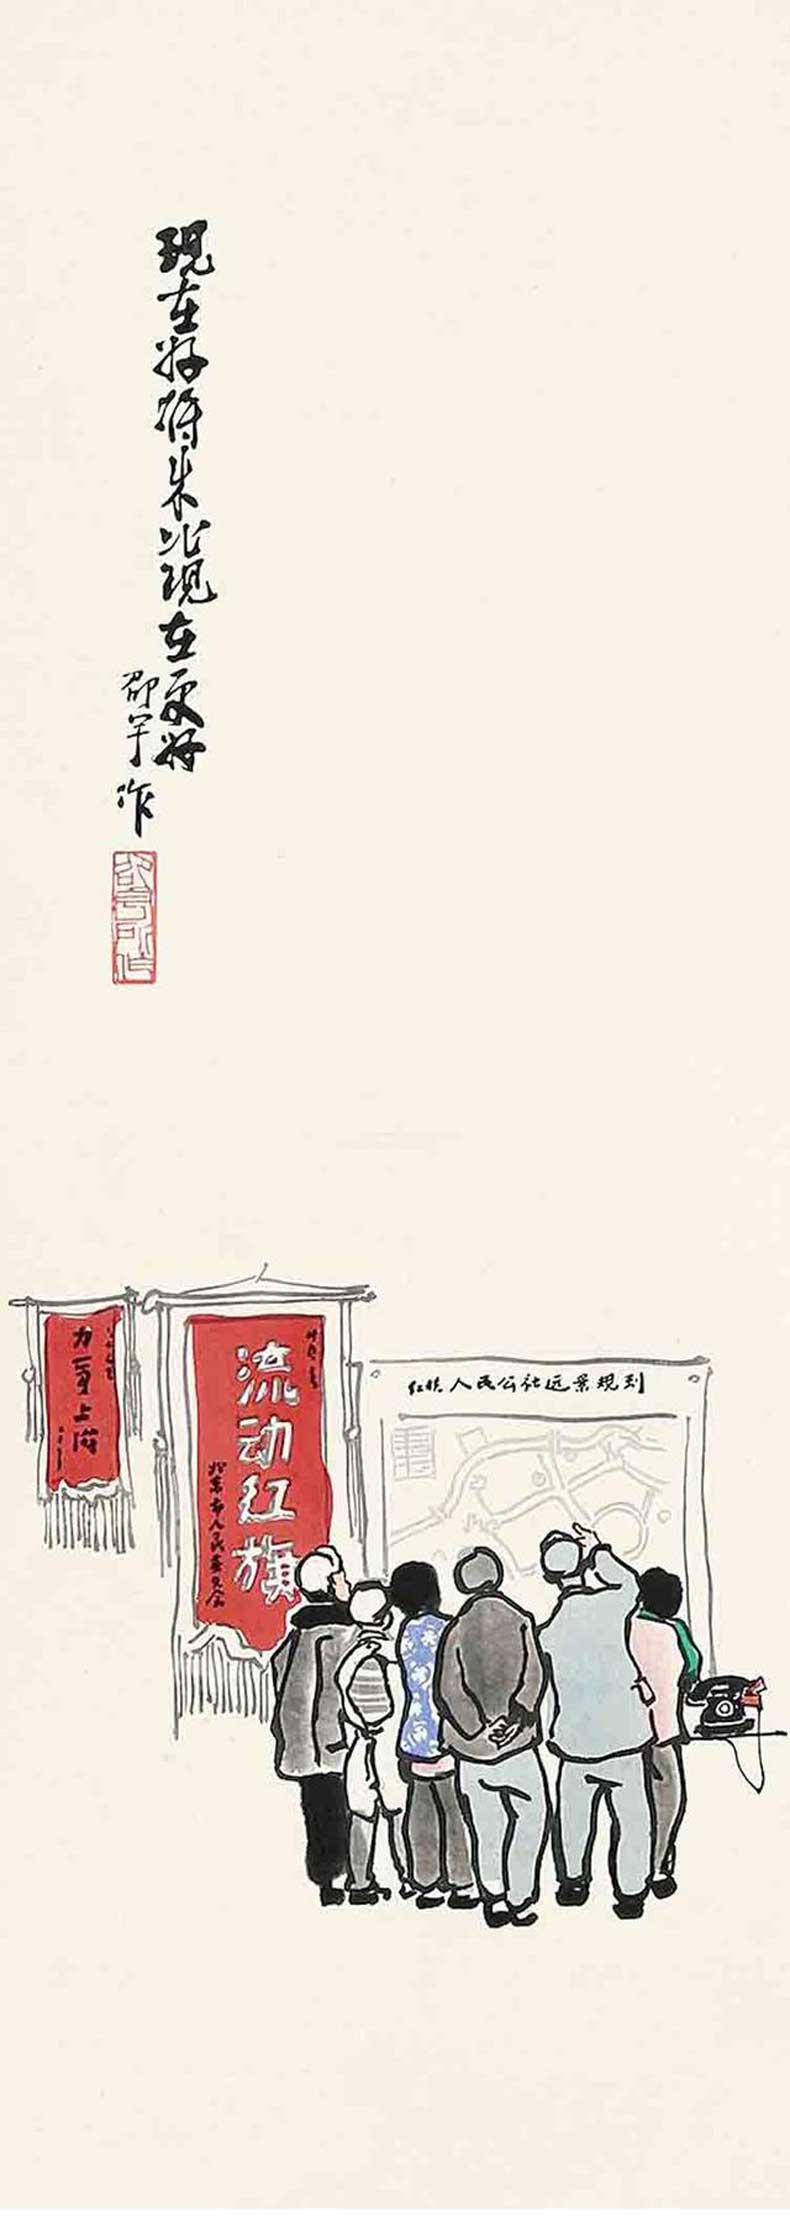 现在好将来比现在更好
邵宇作
邵宇所作
力争上游
流动红旗
北京市人民委员会
红旗人民公社远景规划